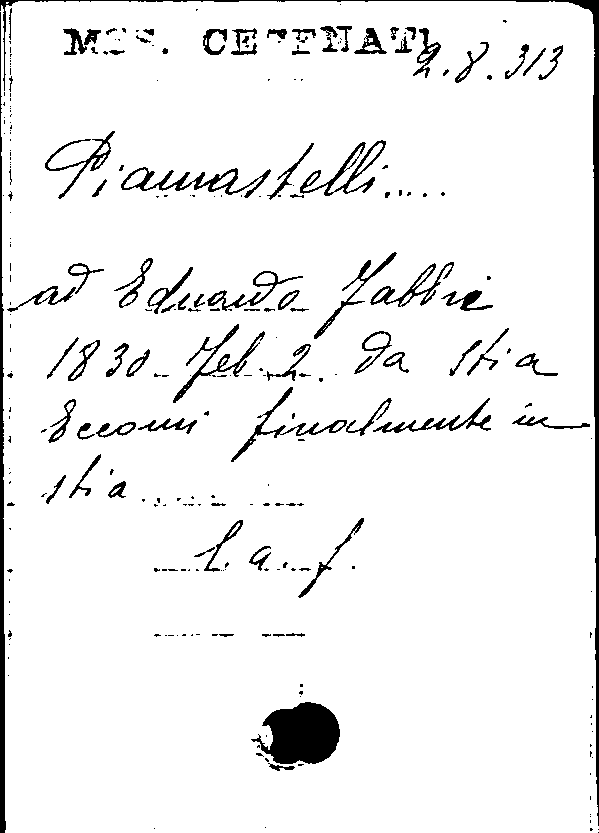 MSS. CESENATI
2.8.313
Piamastelli.....
ad Eduardo Fabbri
1830 Feb. 2. da Stia
Eccomi finalmente in
Stia.....
l. a. f.